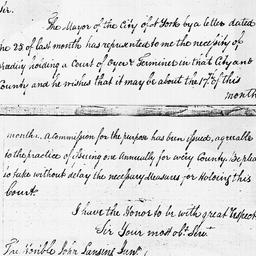 Sir.
The Mayor of the City of N York by a letter dated
the 28 of last month has represented to me the necessity of
holding a Court of Oyer & Terminer in that City and
County and he wishes that it may be about the 17th of this
month
month. A Commission for the purpose has been issued, agreeable
to the practice of issuing one Annually for every County. Be please
to take without delay the necessary Measures for Holding this
Court.
I have the Honor to be with great respect
Sir Your most obt. Servt.
The Honble John Lansing Junr.